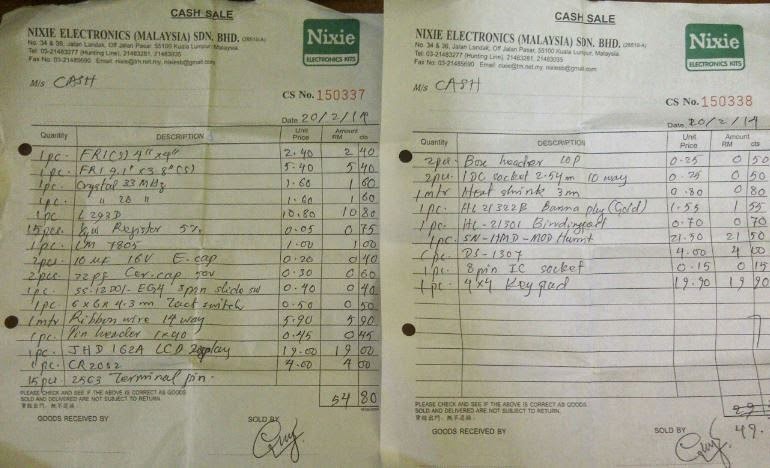 CASH SALE
NIXIE ELECTRONICS (MALAYSIA) SDN. BHD. (28816-A)
No. 34 & 36, Jalan Landak, Off Jalan Pasar, 55100 Kuala Lumpur, Malaysia.
Tel: 03-21483277 (Hunting Line), 21483281, 21483035
Fax No: 03-21485690 Email: nixie@tm.net.my, nixiesb@gmail.com
Nixie
ELECTRONICS KITS
M/s CASH
CS No. 150337
Date 20/2/14
Quantity DESCRIPTION Unit Price Amount RM cts
1pc. FR1(S) 4" x 4" 2.40 2 40
1pc. FR1 9.1" x 3.8"(S) 5.40 5 40
1pc. Crystal 33 MHz 1.60 1 60
1pc " 20 " 1.60 1 60
1pc L293D 10.80 10 80
15pcs Register 5% 0.05 0 75
1pc. LM 7805 1.00 1 00
2pcs 10 µF 16V E.cap 0.20 0 40
2pcs 22pf Cer.cap 50v 0.30 0 60
1pc. SS-12D01-EG4 3pin slide sw 0.40 0 40
1pc. 6x6x4.3m Tact switch 0.50 0 50
1mtr Ribbon wire 14 way 5.90 5 90
1pc. Pin header 1x40 0.45 0 45
1pc. JHD 162A LCD Display 19.00 19 00
1pc. CR2032 4.00 4 00
15pcs 2563 Terminal pin.
54 80
PLEASE CHECK AND SEE IF THE ABOVE IS CORRECT AS GOODS
SOLD AND DELIVERED ARE NOT SUBJECT TO RETURN.
GOODS RECEIVED BY SOLD BY
CASH SALE
NIXIE ELECTRONICS (MALAYSIA) SDN. BHD. (28816-A)
No. 34 & 36, Jalan Landak, Off Jalan Pasar, 55100 Kuala Lumpur, Malaysia.
Tel: 03-21483277 (Hunting Line), 21483281, 21483035
Fax No: 03-21485690 Email: nixie@tm.net.my, nixiesb@gmail.com
Nixie
ELECTRONICS KITS
M/s CASH
CS No. 150338
Date 20/2/14
Quantity DESCRIPTION Unit Price Amount RM cts
2pcs Box header 10p 0.25 0 50
2pcs IDC socket 2.54m 10 way 0.25 0 50
1mtr Heat shrink 3m 0.80 0 80
1pc. HL 21322B Banna plug (Gold) 1.55 1 55
1pc. HL-21301 Binding 0.70 0 70
1pc SN-HMD-MOD Humt 21.50 21 50
1pc. DS-1307 4.00 4 00
1pc. 8pin IC socket 0.15 0 15
1pc. 4x4 Keypad 19.90 19 90
49.
PLEASE CHECK AND SEE IF THE ABOVE IS CORRECT AS GOODS
SOLD AND DELIVERED ARE NOT SUBJECT TO RETURN.
GOODS RECEIVED BY SOLD BY